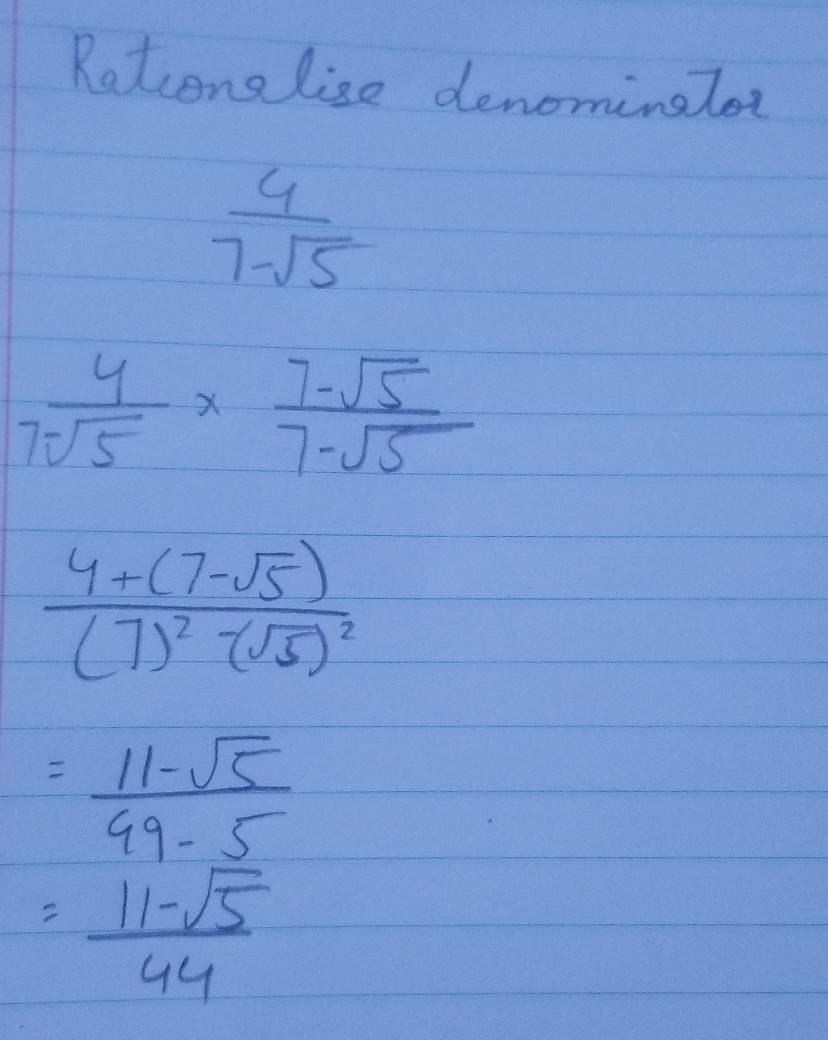 Rationalise denominator
4
7-√5
4/7-√5 × 7-√5/7-√5
4+(7-√5)
(7)² -(√5)²
= 11-√5
49-5
= 11-√5
44